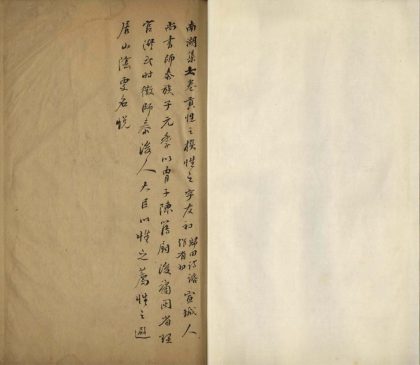 南湖集卷貢性之撰性之字友初歸田詩話作有初宣城人
尚書師泰族子元季以胄子除簿尉後補閩省理
官洪武時徵師泰後人大臣以性之薦性之避
居山陰更名悅